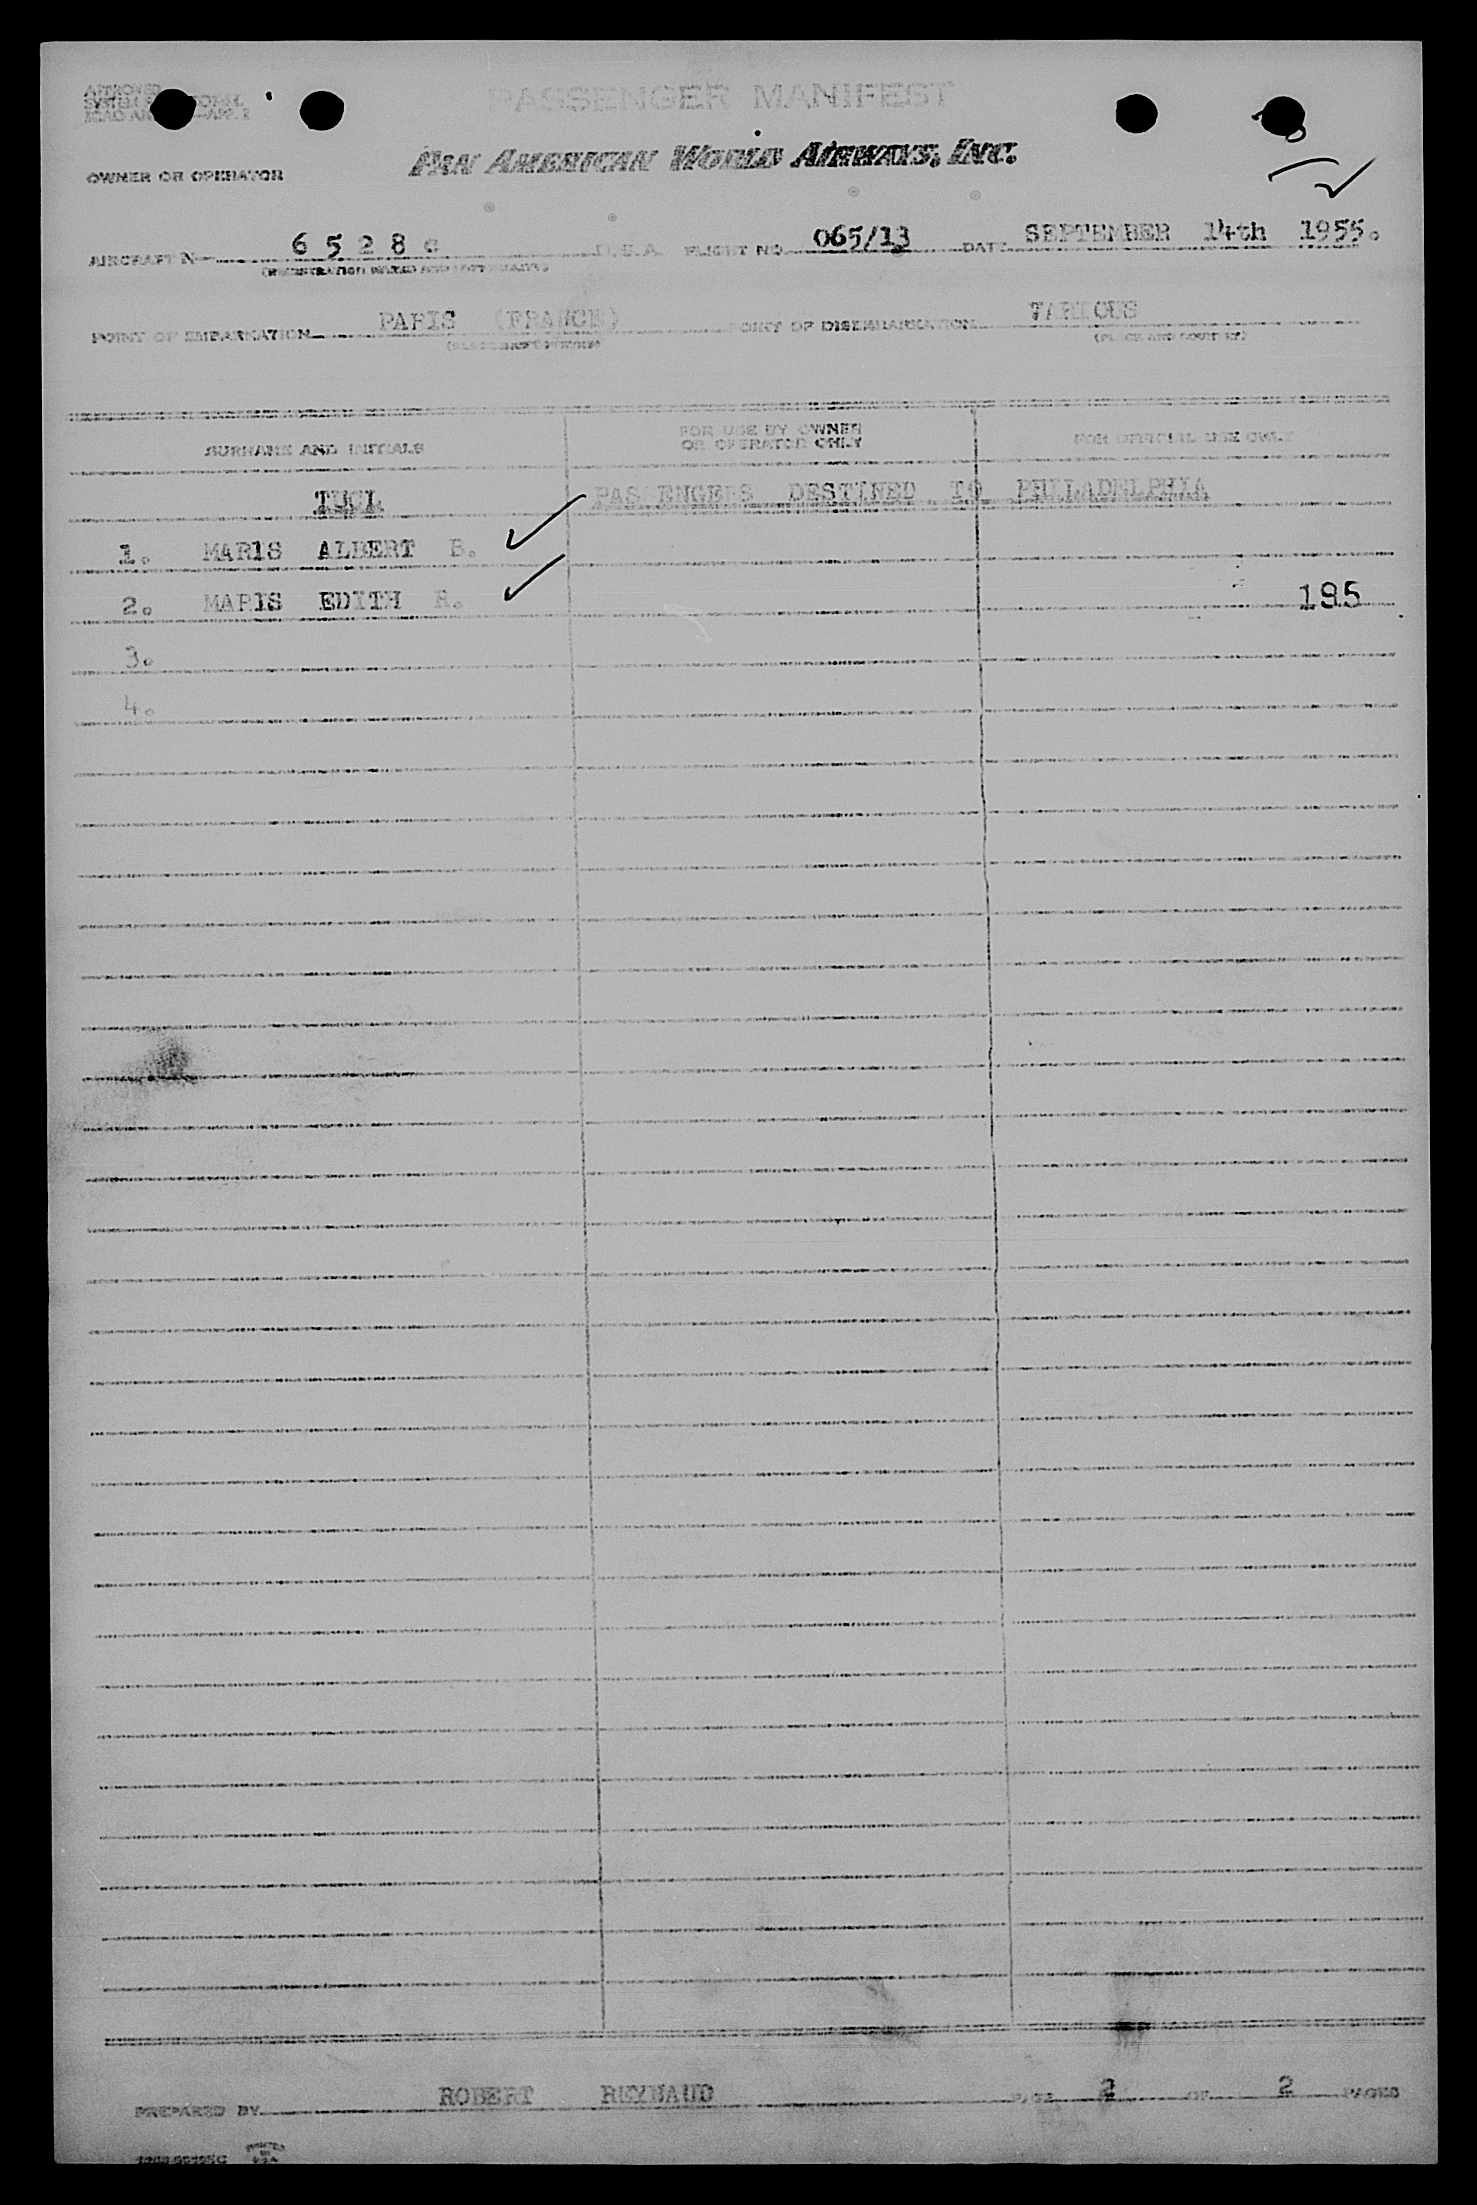 APPROVED
PASSENGER MANIFEST
PAN AMERICAN WORLD AIRWAYS, INC.
OWNER OR OPERATOR
AIRCRAFT N- 6 5 2 8 C U.S.A. FLIGHT NO. 065/13 DATE SEPTEMBER 14th 1955.
POINT OF EMBARKATION PARIS (FRANCE) POINT OF DISEMBARKATION VARIOUS
(PLACE AND COUNTRY) (PLACE AND COUNTRY)
SURNAME AND INITIALS FOR USE BY OWNER OR OPERATOR ONLY FOR OFFICIAL USE ONLY
PASSENGERS DESTINED TO PHILADELPHIA
1. MARIS ALBERT B.
2. MARIS EDITH R. 185
3.
4.
PREPARED BY ROBERT REYNAUD PAGE 2 OF 2 PAGES
PRINTED IN U.S.A.